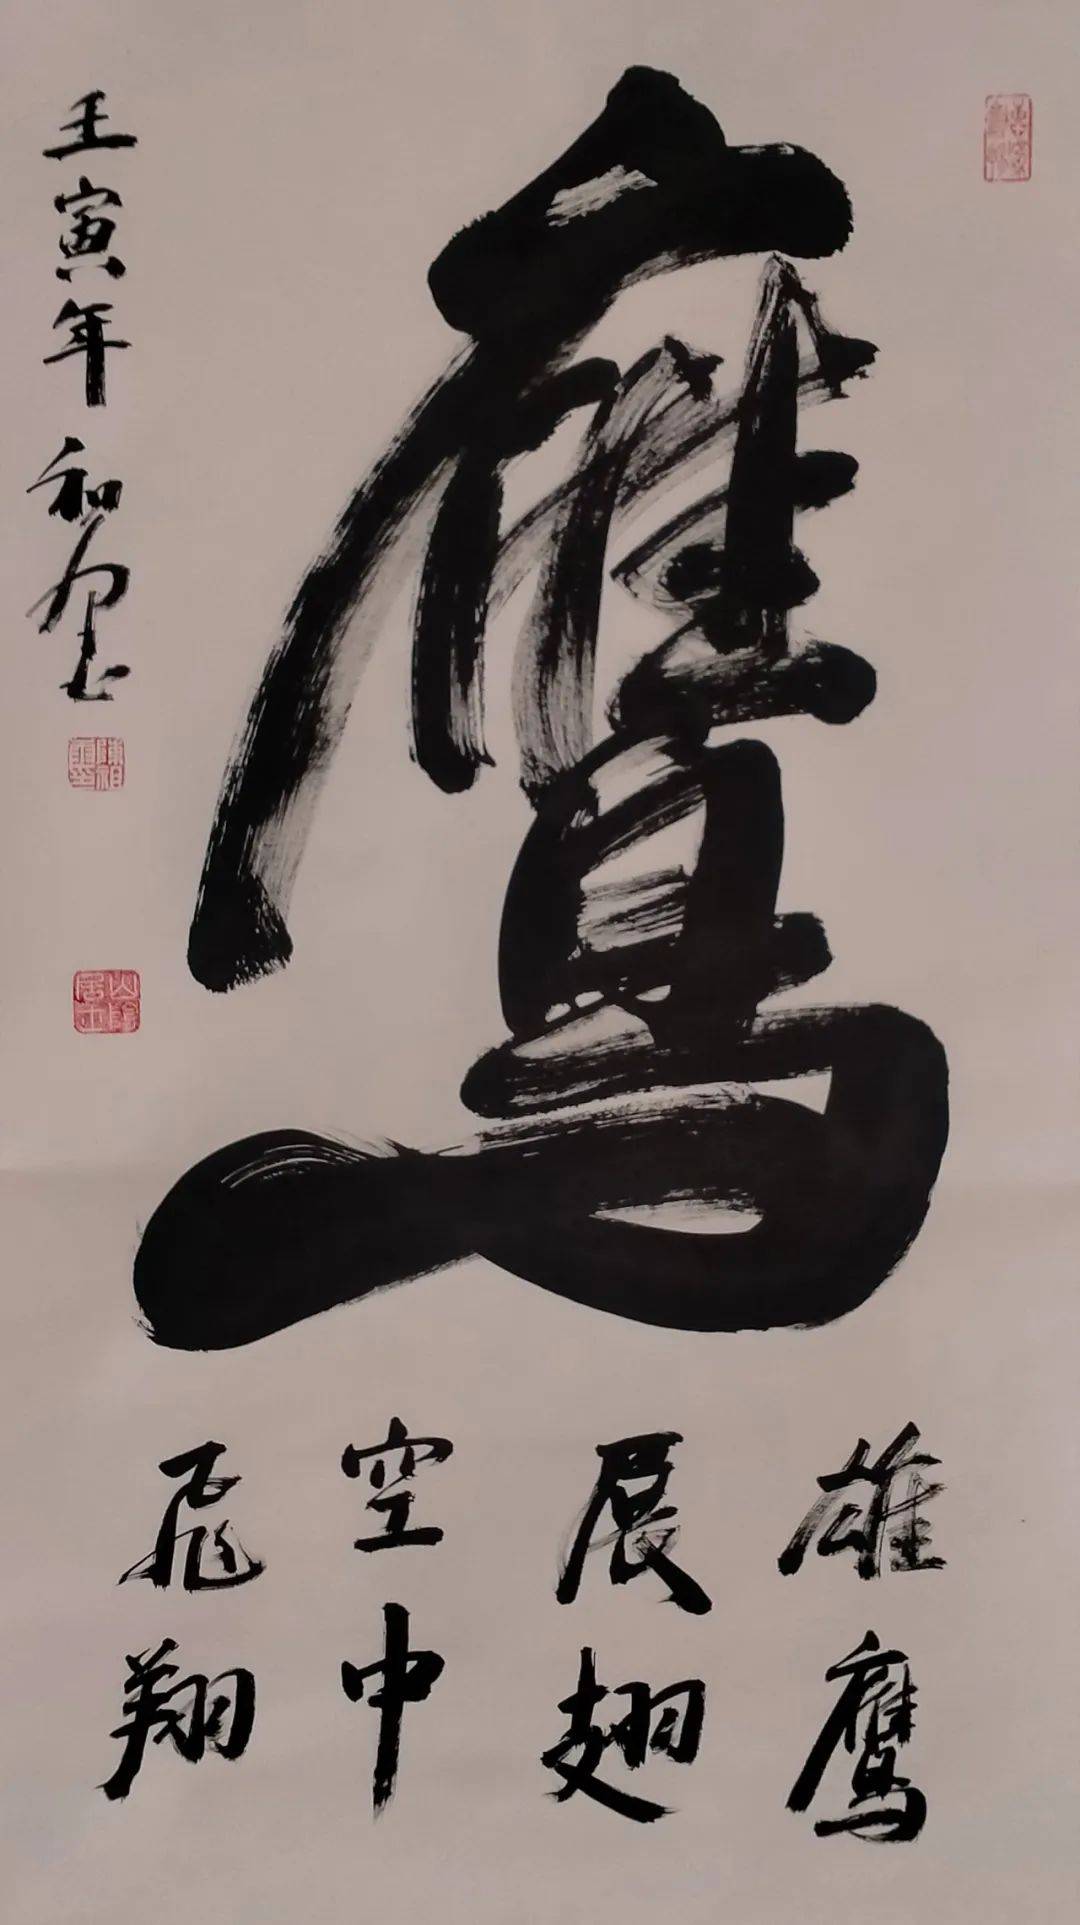 鹰
雄鹰
展翅
空中
飞翔
壬寅年